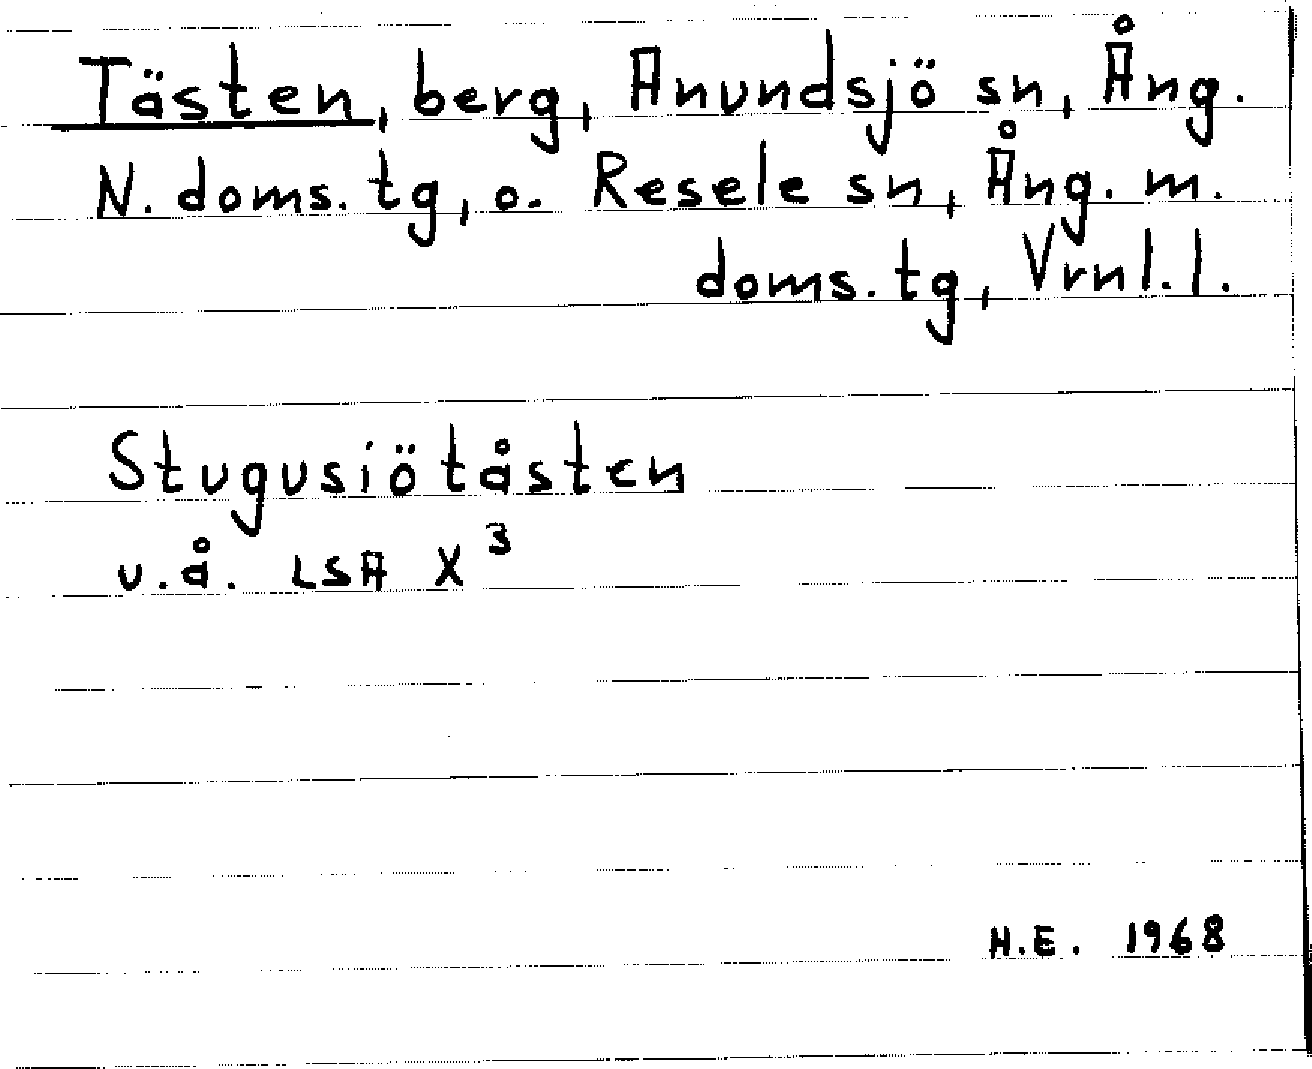 Tästen, berg, Anundsjö sn, Ång.
N. doms. tg, o. Resele sn, Ång. m.
doms. tg, Vrnl. l.
Stugusiötåsten
u.å. LSA X³
H.E. 1968